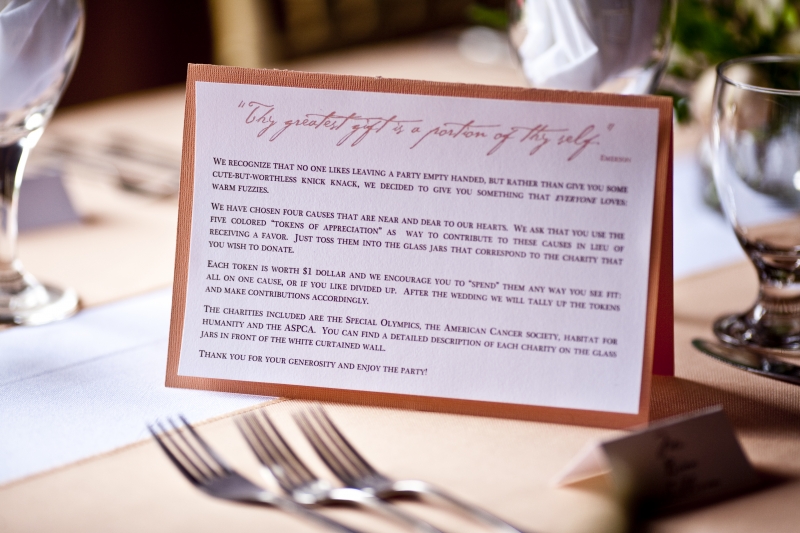 "Thy greatest gift is a portion of thy self."
Emerson
We recognize that no one likes leaving a party empty handed, but rather than give you some
cute-but-worthless knick knack, we decided to give you something that everyone loves:
warm fuzzies.
We have chosen four causes that are near and dear to our hearts. We ask that you use the
five colored "tokens of appreciation" as way to contribute to these causes in lieu of
receiving a favor. Just toss them into the glass jars that correspond to the charity that
you wish to donate.
Each token is worth $1 dollar and we encourage you to "spend" them any way you see fit:
all on one cause, or if you like divided up. After the wedding we will tally up the tokens
and make contributions accordingly.
The charities included are the Special Olympics, the American Cancer society, habitat for
humanity and the ASPCA. You can find a detailed description of each charity on the glass
jars in front of the white curtained wall.
Thank you for your generosity and enjoy the party!